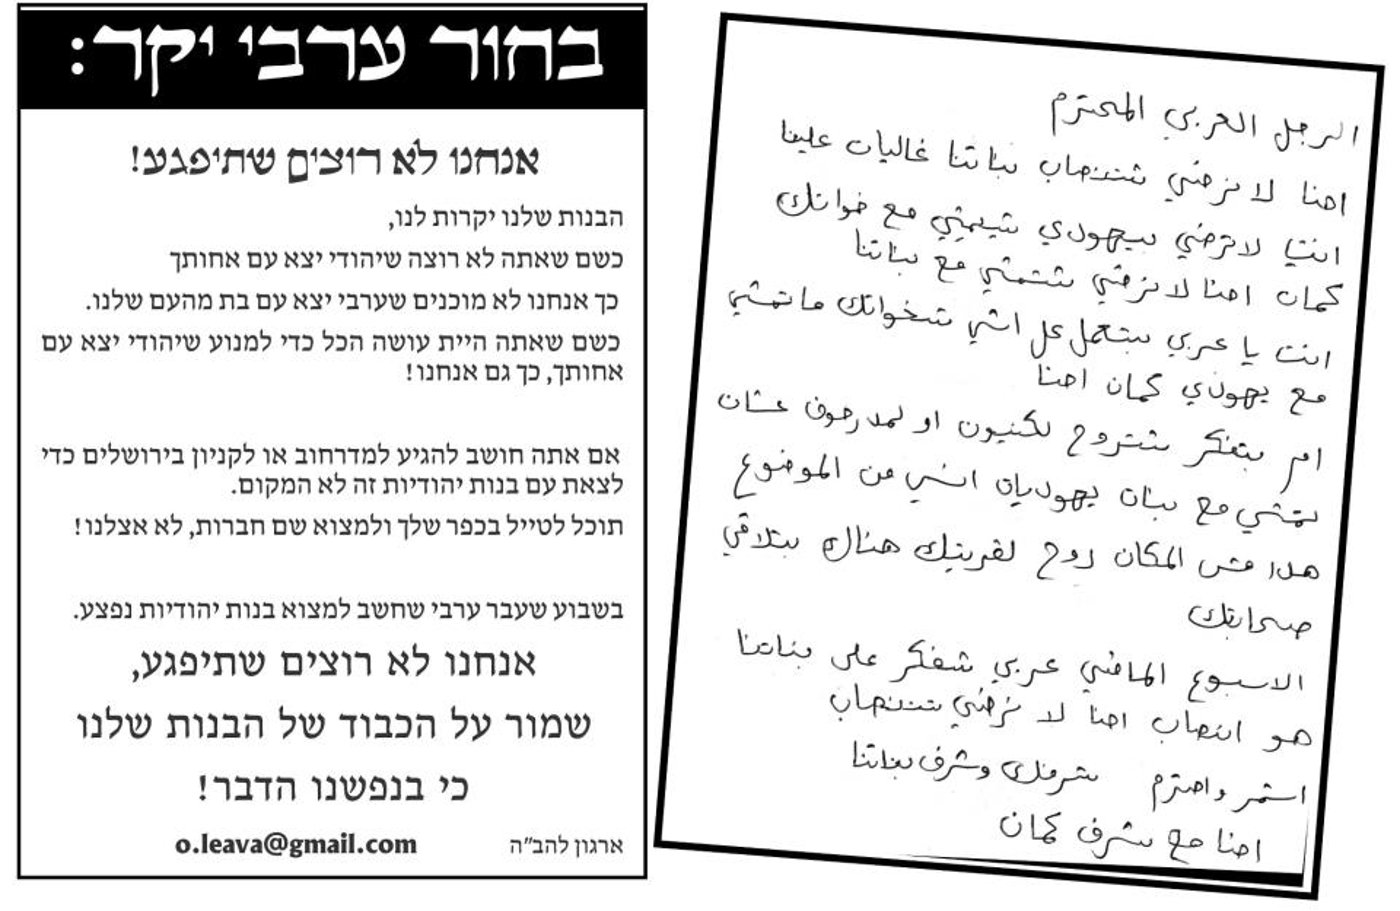 בחור ערבי יקר:
אנחנו לא רוצים שתיפגע!
הבנות שלנו יקרות לנו,
כשם שאתה לא רוצה שיהודי יצא עם אחותך
כך אנחנו לא מוכנים שערבי יצא עם בת מהעם שלנו.
כשם שאתה היית עושה הכל כדי למנוע שיהודי יצא עם
אחותך, כך גם אנחנו!
אם אתה חושב להגיע למדרחוב או לקניון בירושלים כדי
לצאת עם בנות יהודיות זה לא המקום.
תוכל לטייל בכפר שלך ולמצוא שם חברות, לא אצלנו!
בשבוע שעבר ערבי שחשב למצוא בנות יהודיות נפצע.
אנחנו לא רוצים שתיפגע,
שמור על הכבוד של הבנות שלנו
כי בנפשנו הדבר!
ארגון להב"ה o.leava@gmail.com
الرجل العربي المحترم
احنا لا نرضي شتنصاب بناتنا غاليات علينا
انت لا ترضي بيهودي شيمشي مع خواتك
كمان احنا لا نرضي شتمشي مع بناتنا
انت يا عربي بتعمل كل اشي شخواتك ما تمشي
مع يهودي كمان احنا
ام بتفكر شتروح لكنيون او لمدرحوف عشان
تمشي مع بنات يهوديات انسي من الموضوع
هدا مش المكان روح لقريتك هناك بتلاقي
صحابتك
الاسبوع الماضي عربي شفكر على بناتنا
هو انصاب احنا لا نرضي شتنصاب
استمر واحترم شرفك وشرف بناتنا
احنا مع شرف كمان